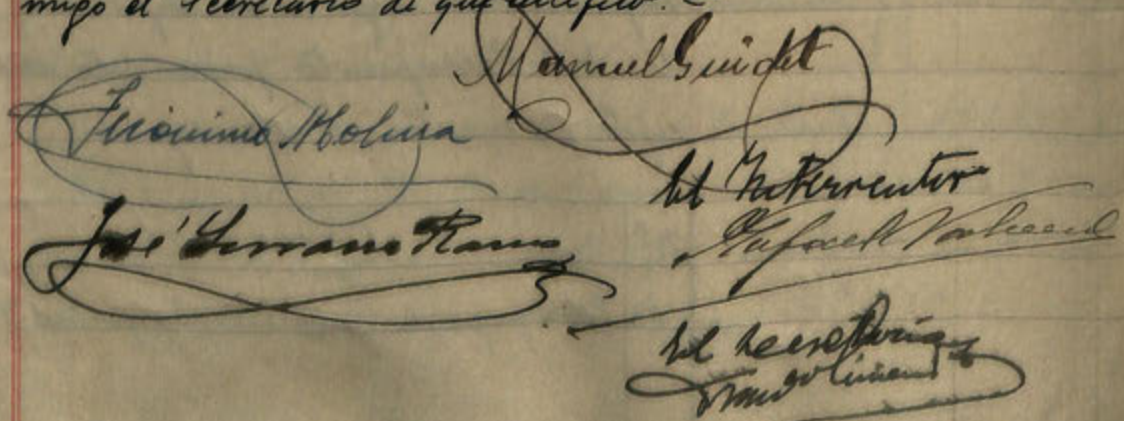 migo el Secretario de que certifico.-
Manuel Guidet
Jeronimo Molina
El Interventor
José Serrano Ramos
Rafael
El Secretario